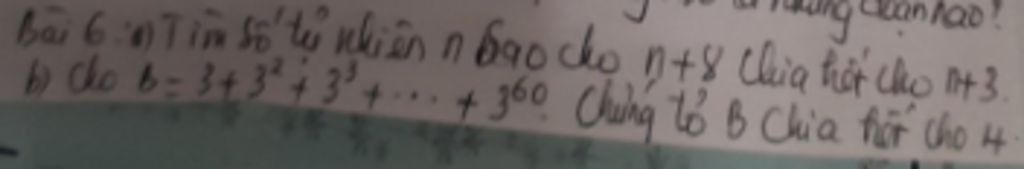 đoạn nào?
Bài 6: a) Tìm số tự nhiên n sao cho n+8 chia hết cho n+3.
b) Cho B = 3 + 3² + 3³ + ... + 3⁶⁰. Chứng tỏ B chia hết cho 4.